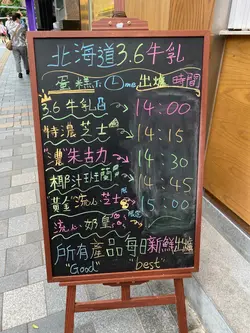 北海道3.6牛乳
蛋糕Time出爐時間
3.6牛乳 14:00
特濃芝士 14:15
"濃"朱古力 14:30
椰汁班蘭 14:45
黃金流心芝士 15:00
流心奶皇
所有產品每日新鮮出爐
"Good" "best"